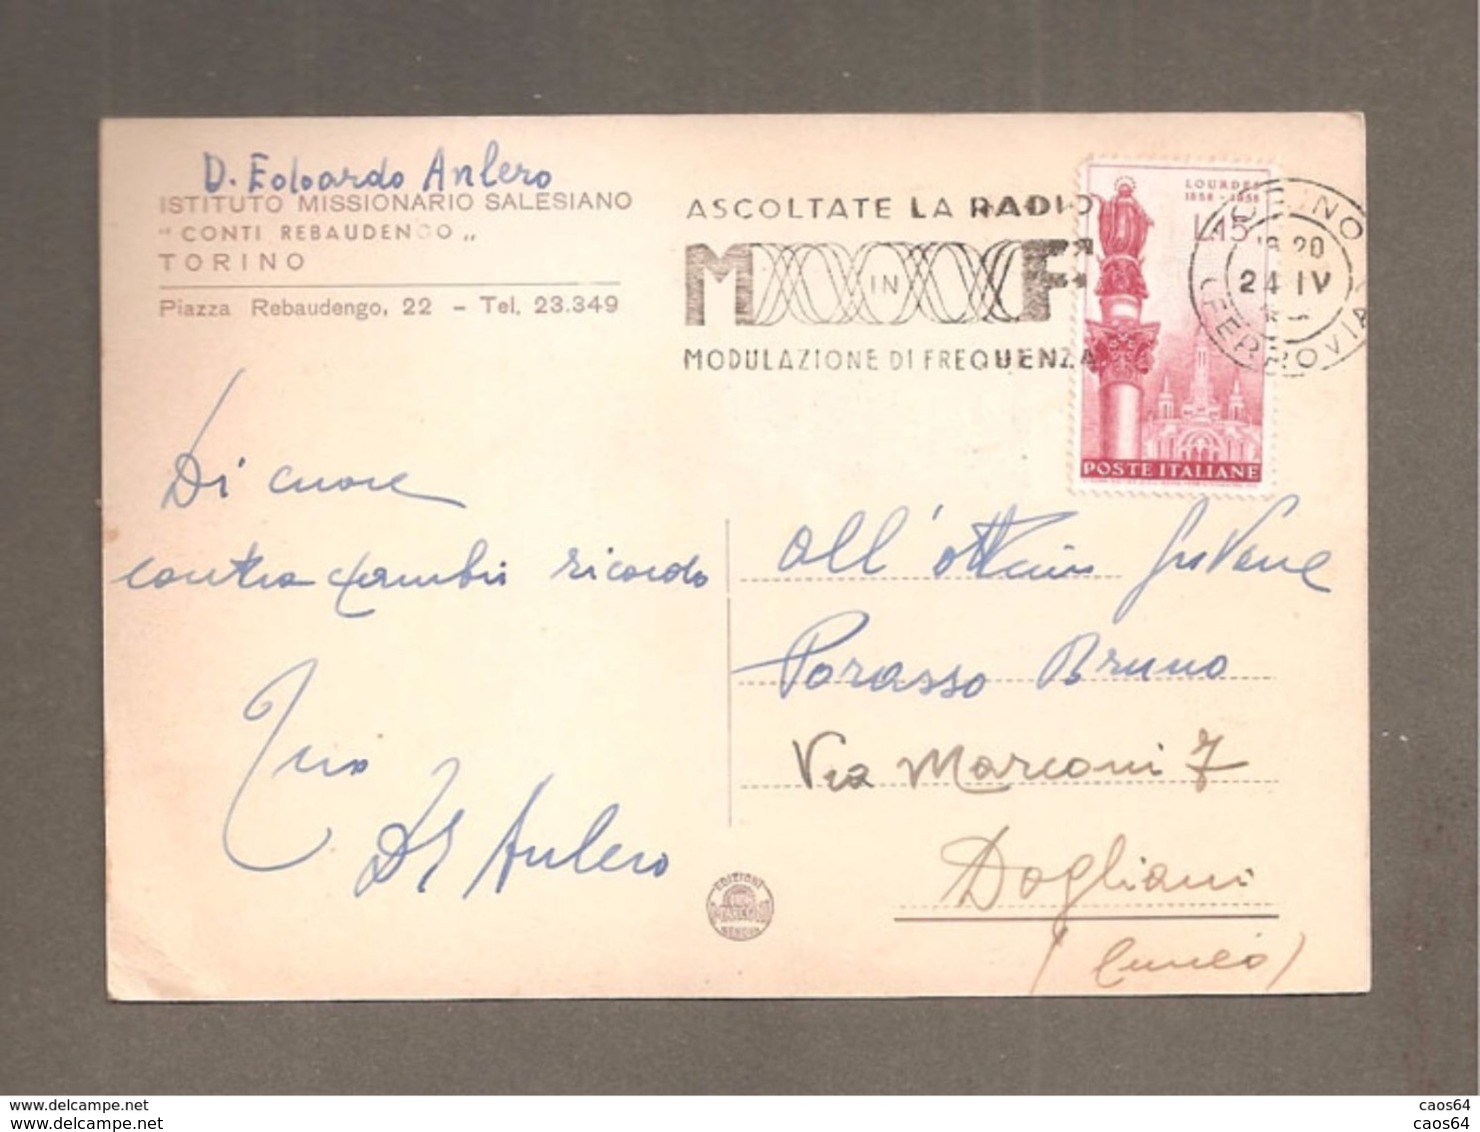 D. Edoardo Anlero
ISTITUTO MISSIONARIO SALESIANO
"CONTI REBAUDENGO„
TORINO
Piazza Rebaudengo, 22 - Tel. 23.349
ASCOLTATE LA RADIO
M IN F
MODULAZIONE DI FREQUENZA
LOURDES
1858 - 1958
L.15
POSTE ITALIANE
TORINO
18 20
24 IV
FERROVIA
Di cuore
contraccambio ricordo
Anlero
all'ottimo giovane
Porasso Bruno
Via Marconi 7
Dogliani
(Cuneo)
EDIZIONI
GENOVA
caos64
caos64
caos64
caos64